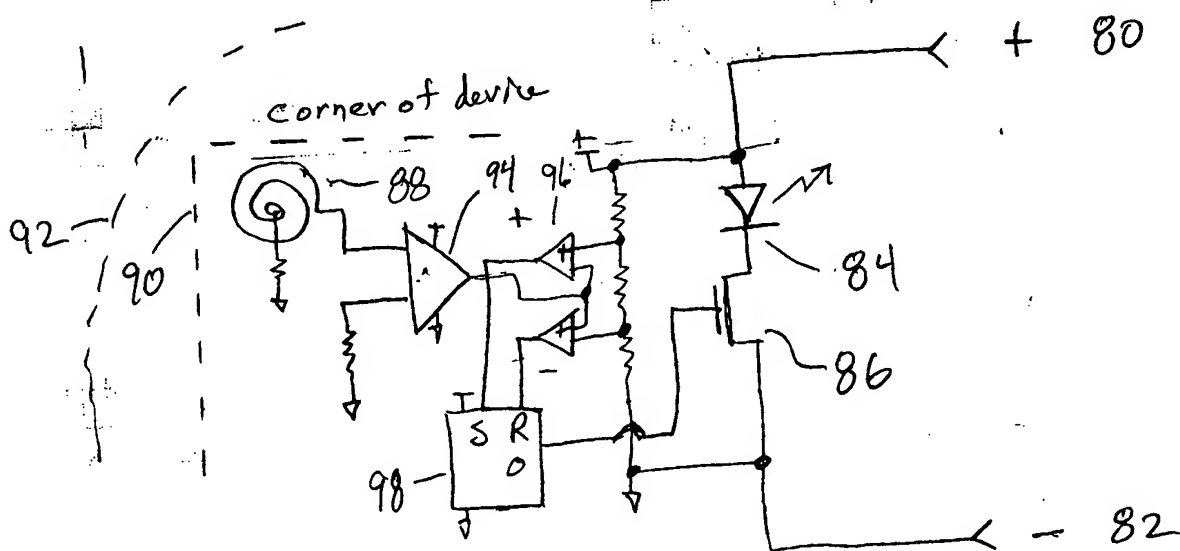 + 80
corner of device
88
94
96
+
92
90
84
86
S R
O
98
- 82